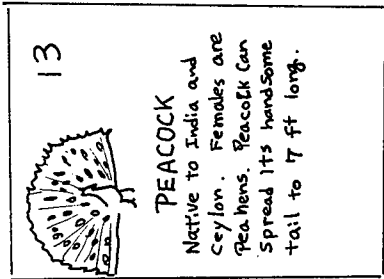 13
PEACOCK
Native to India and
Ceylon. Females are
Peahens. Peacock can
spread its handsome
tail to 7 ft long.